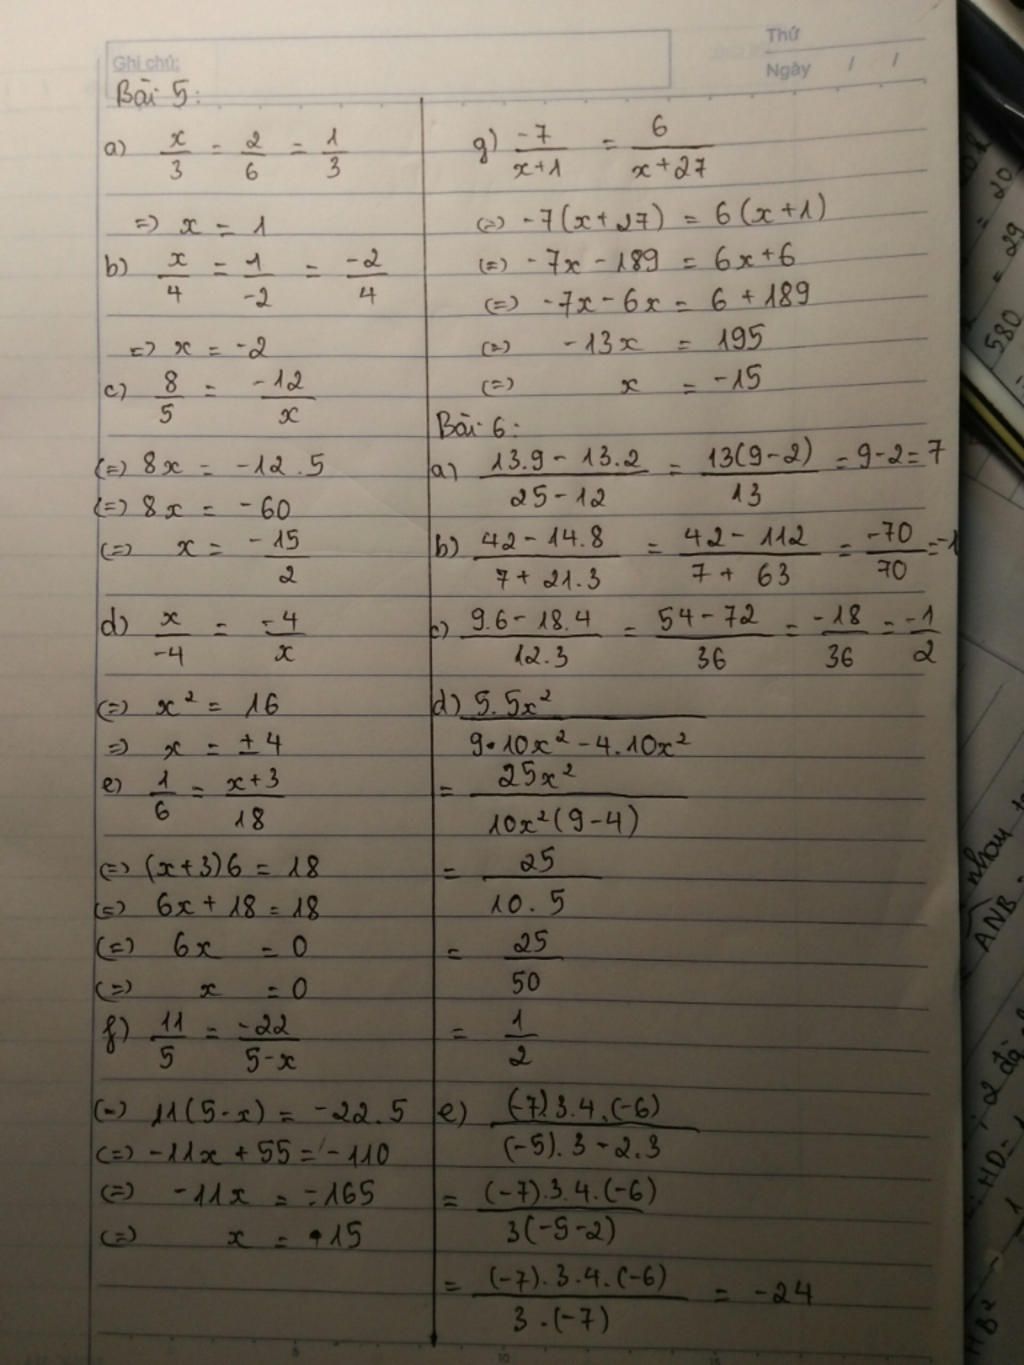 Ghi chú:
Thứ
Ngày / /
Bài 5:
a) x/3 = 2/6 = 1/3
=> x = 1
b) x/4 = 1/-2 = -2/4
=> x = -2
c) 8/5 = -12/x
(=) 8x = -12.5
(=) 8x = -60
(=) x = -15/2
d) x/-4 = -4/x
(=) x² = 16
=> x = ±4
e) 1/6 = x+3/18
(=) (x+3)6 = 18
(=) 6x + 18 = 18
(=) 6x = 0
(=) x = 0
f) 11/5 = -22/5-x
(=) 11(5-x) = -22.5
(=) -11x + 55 = -110
(=) -11x = -165
(=) x = 15
g) -7/x+1 = 6/x+27
(=) -7(x+27) = 6(x+1)
(=) -7x - 189 = 6x+6
(=) -7x - 6x = 6 + 189
(=) -13x = 195
(=) x = -15
Bài 6:
a) 13.9 - 13.2/25-12 = 13(9-2)/13 = 9-2 = 7
b) 42 - 14.8/7 + 21.3 = 42 - 112/7 + 63 = -70/70 = -1
c) 9.6 - 18.4/12.3 = 54 - 72/36 = -18/36 = -1/2
d) 5.5x²/9.10x² - 4.10x²
= 25x²/10x²(9-4)
= 25/10.5
= 25/50
= 1/2
e) (-7)3.4.(-6)/(-5).3 - 2.3
= (-7).3.4.(-6)/3(-5-2)
= (-7).3.4.(-6)/3.(-7) = -24
= 20
= 29
580
nhau
ANB
2
HD=
HB²
5
10